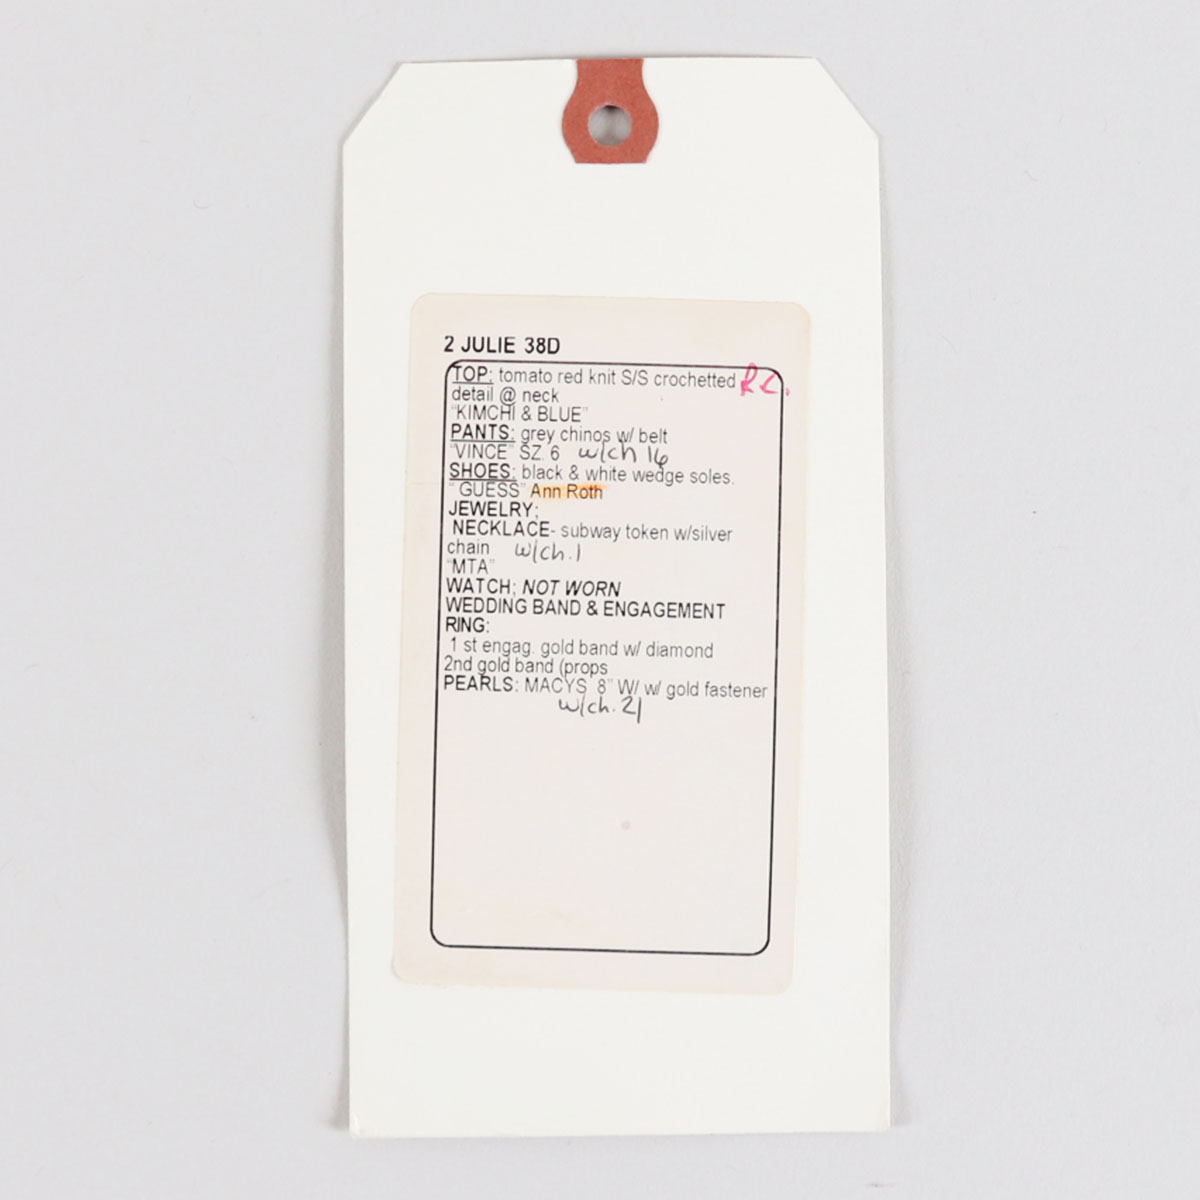 2 JULIE 38D
TOP: tomato red knit S/S crochetted R L.
detail @ neck
"KIMCHI & BLUE"
PANTS: grey chinos w/ belt
"VINCE" SZ. 6 w/ch 16
SHOES: black & white wedge soles.
" GUESS" Ann Roth
JEWELRY:
NECKLACE- subway token w/silver
chain w/ch.1
"MTA"
WATCH: NOT WORN
WEDDING BAND & ENGAGEMENT
RING:
1 st engag. gold band w/ diamond
2nd gold band (props
PEARLS: MACYS 8" W/ w/ gold fastener
w/ch. 21